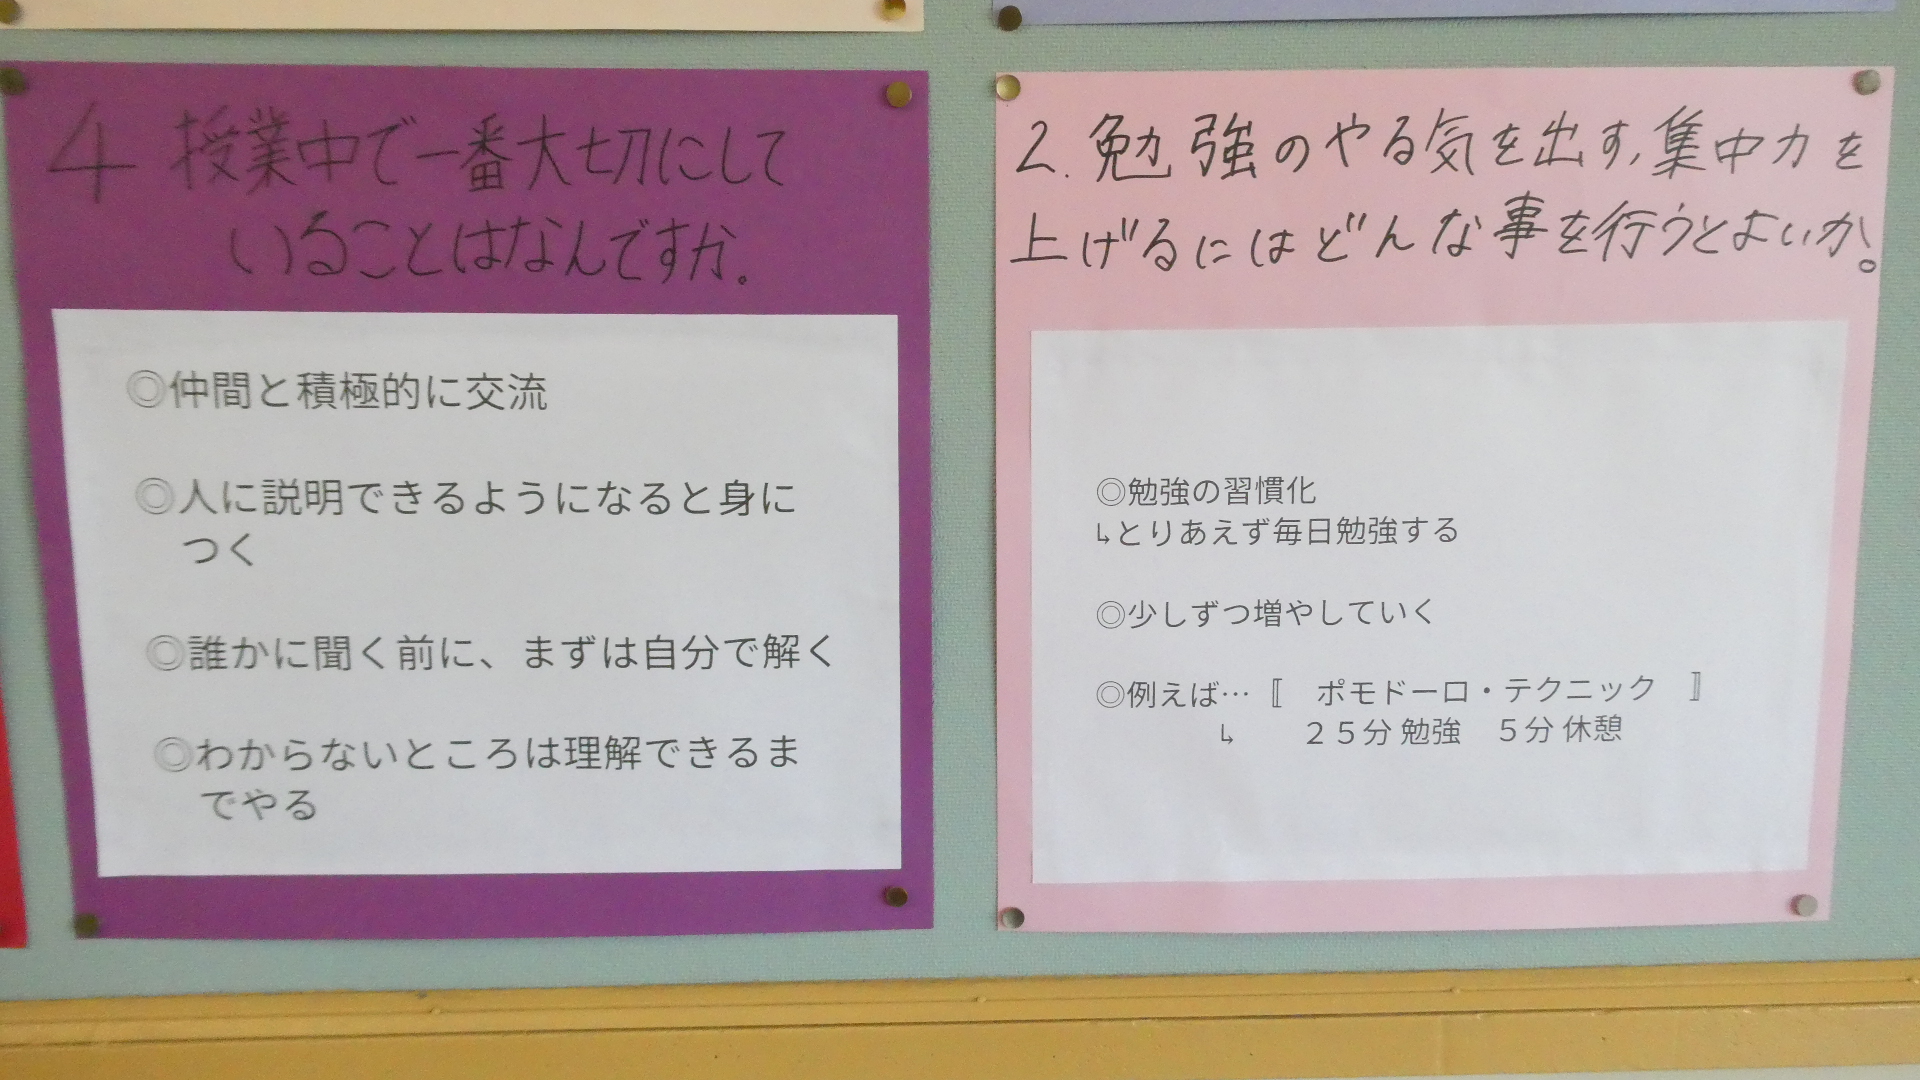 4 授業中で一番大切にして
いることはなんですか。
◎仲間と積極的に交流
◎人に説明できるようになると身に
つく
◎誰かに聞く前に、まずは自分で解く
◎わからないところは理解できるま
でやる
2. 勉強のやる気を出す,集中力を
上げるにはどんな事を行うとよいか。
◎勉強の習慣化
↳とりあえず毎日勉強する
◎少しずつ増やしていく
◎例えば…〚 ポモドーロ・テクニック 〛
↳ 25分 勉強 5分 休憩